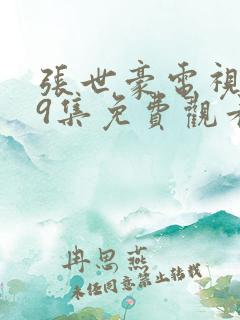 張世豪電視
9集免費觀看
冉思燕
未任同意禁止转载